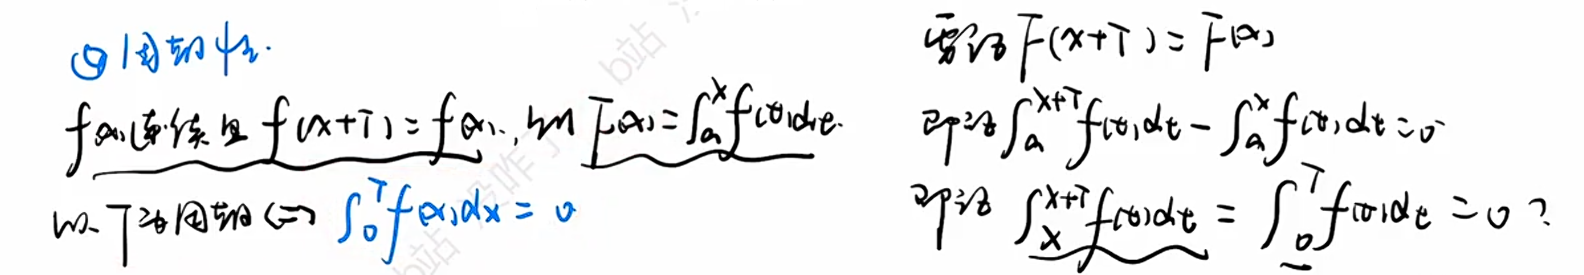 ② 周期性.
f(x)连续且 f(x+T)=f(x), 则 F(x)=∫ₐˣf(t)dt.
以T为周期⇔ ∫₀ᵀf(x)dx=0
需证 F(x+T)=F(x)
即证 ∫ₐˣ⁺ᵀf(t)dt-∫ₐˣf(t)dt=0
即证 ∫ₓˣ⁺ᵀf(t)dt=∫₀ᵀf(t)dt=0?
b站
b站